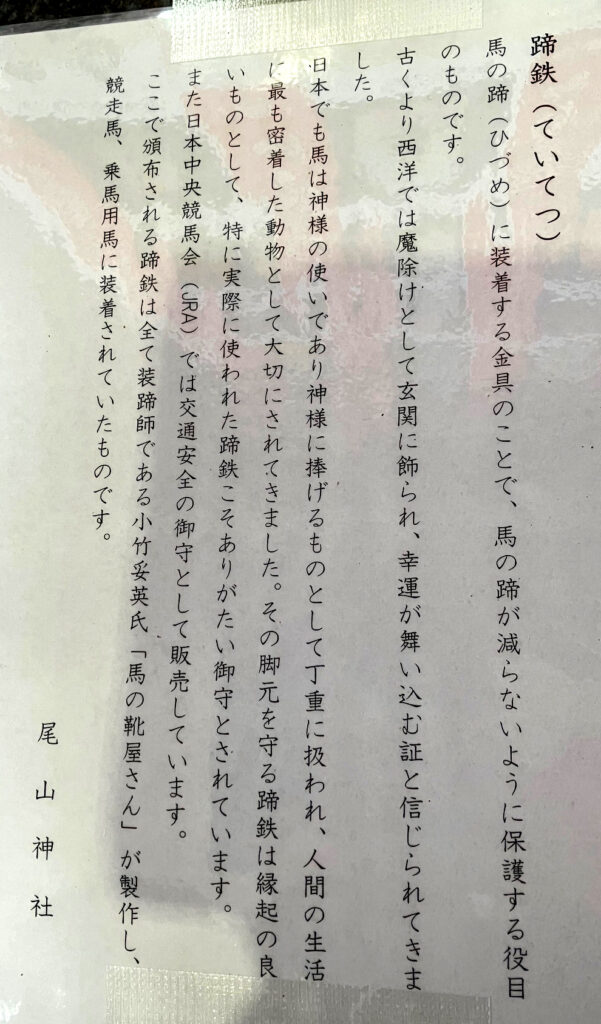 蹄鉄（ていてつ）
馬の蹄（ひづめ）に装着する金具のことで、馬の蹄が減らないように保護する役目
のものです。
古くより西洋では魔除けとして玄関に飾られ、幸運が舞い込む証と信じられてきま
した。
日本でも馬は神様の使いであり神様に捧げるものとして丁重に扱われ、人間の生活
に最も密着した動物として大切にされてきました。その脚元を守る蹄鉄は縁起の良
いものとして、特に実際に使われた蹄鉄こそありがたい御守とされています。
また日本中央競馬会（JRA）では交通安全の御守として販売しています。
ここで頒布される蹄鉄は全て装蹄師である小竹妥英氏「馬の靴屋さん」が製作し、
競走馬、乗馬用馬に装着されていたものです。
尾山神社